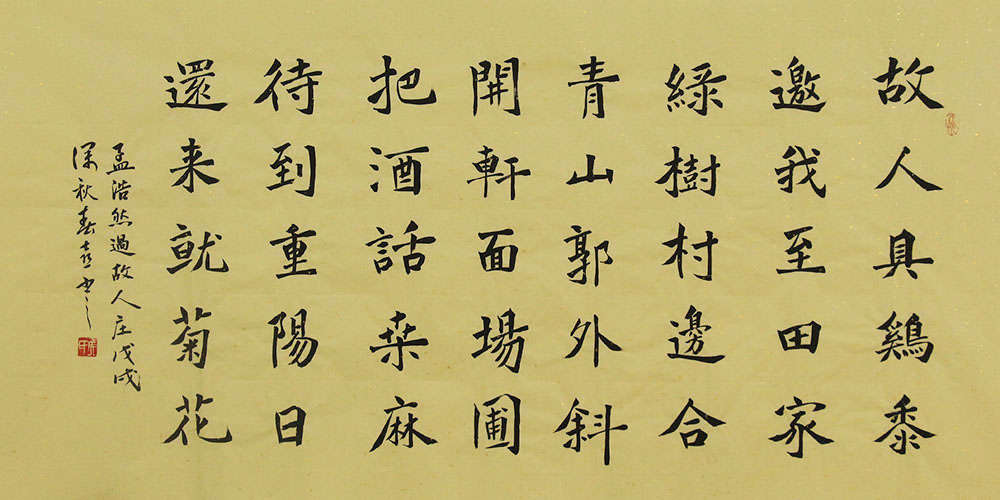 故人具鷄黍
邀我至田家
綠樹村邊合
青山郭外斜
開軒面場圃
把酒話桒麻
待到重陽日
還来就菊花
孟浩然過故人庄戊戌
深秋春喜书之